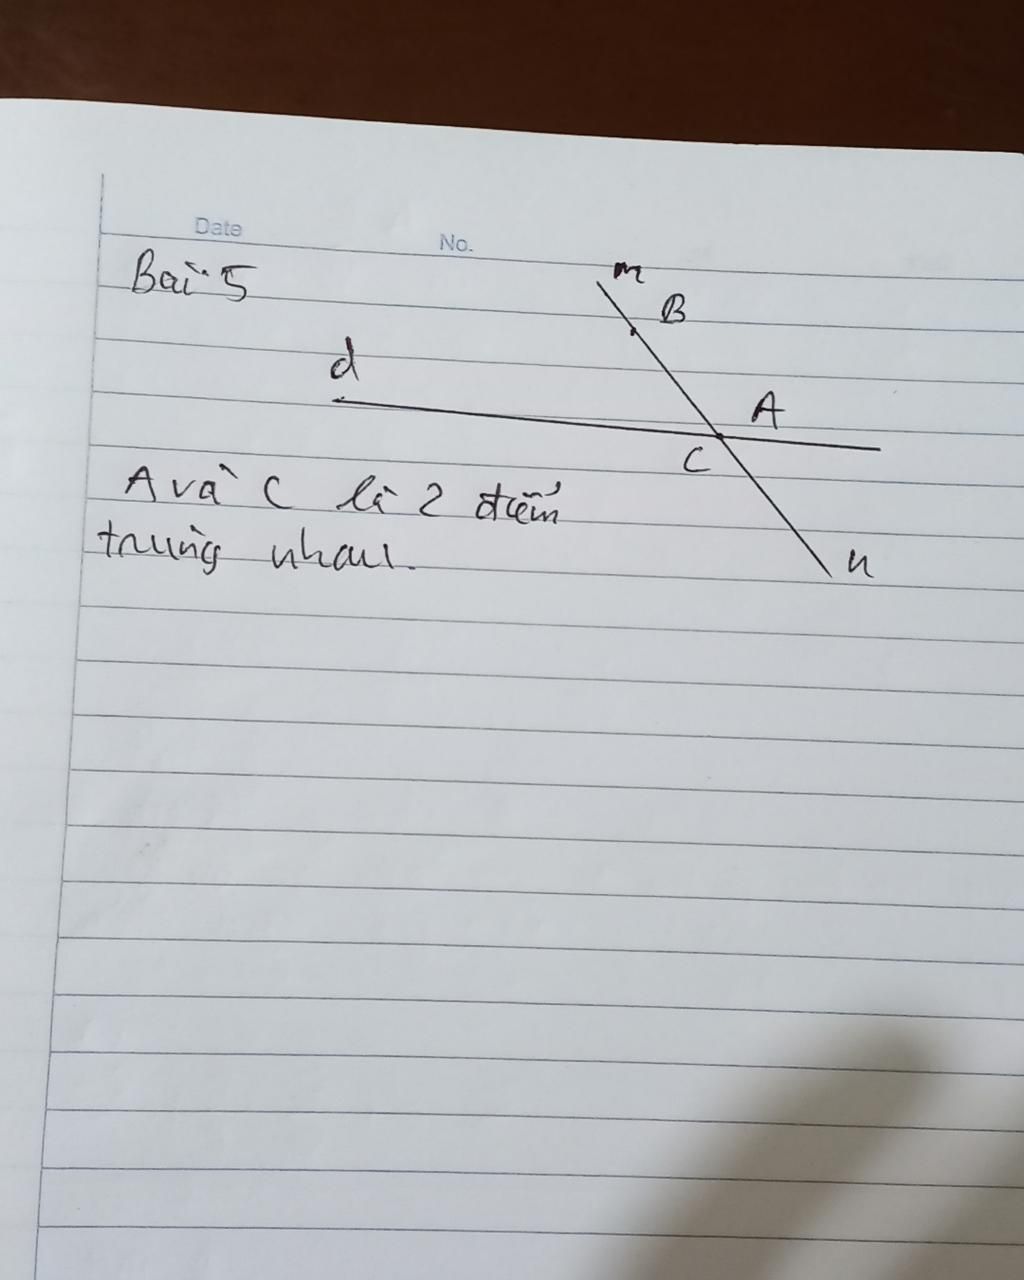 Date No.
Bài 5
m
B
d
A
C
n
A và C là 2 điểm
trùng nhau.